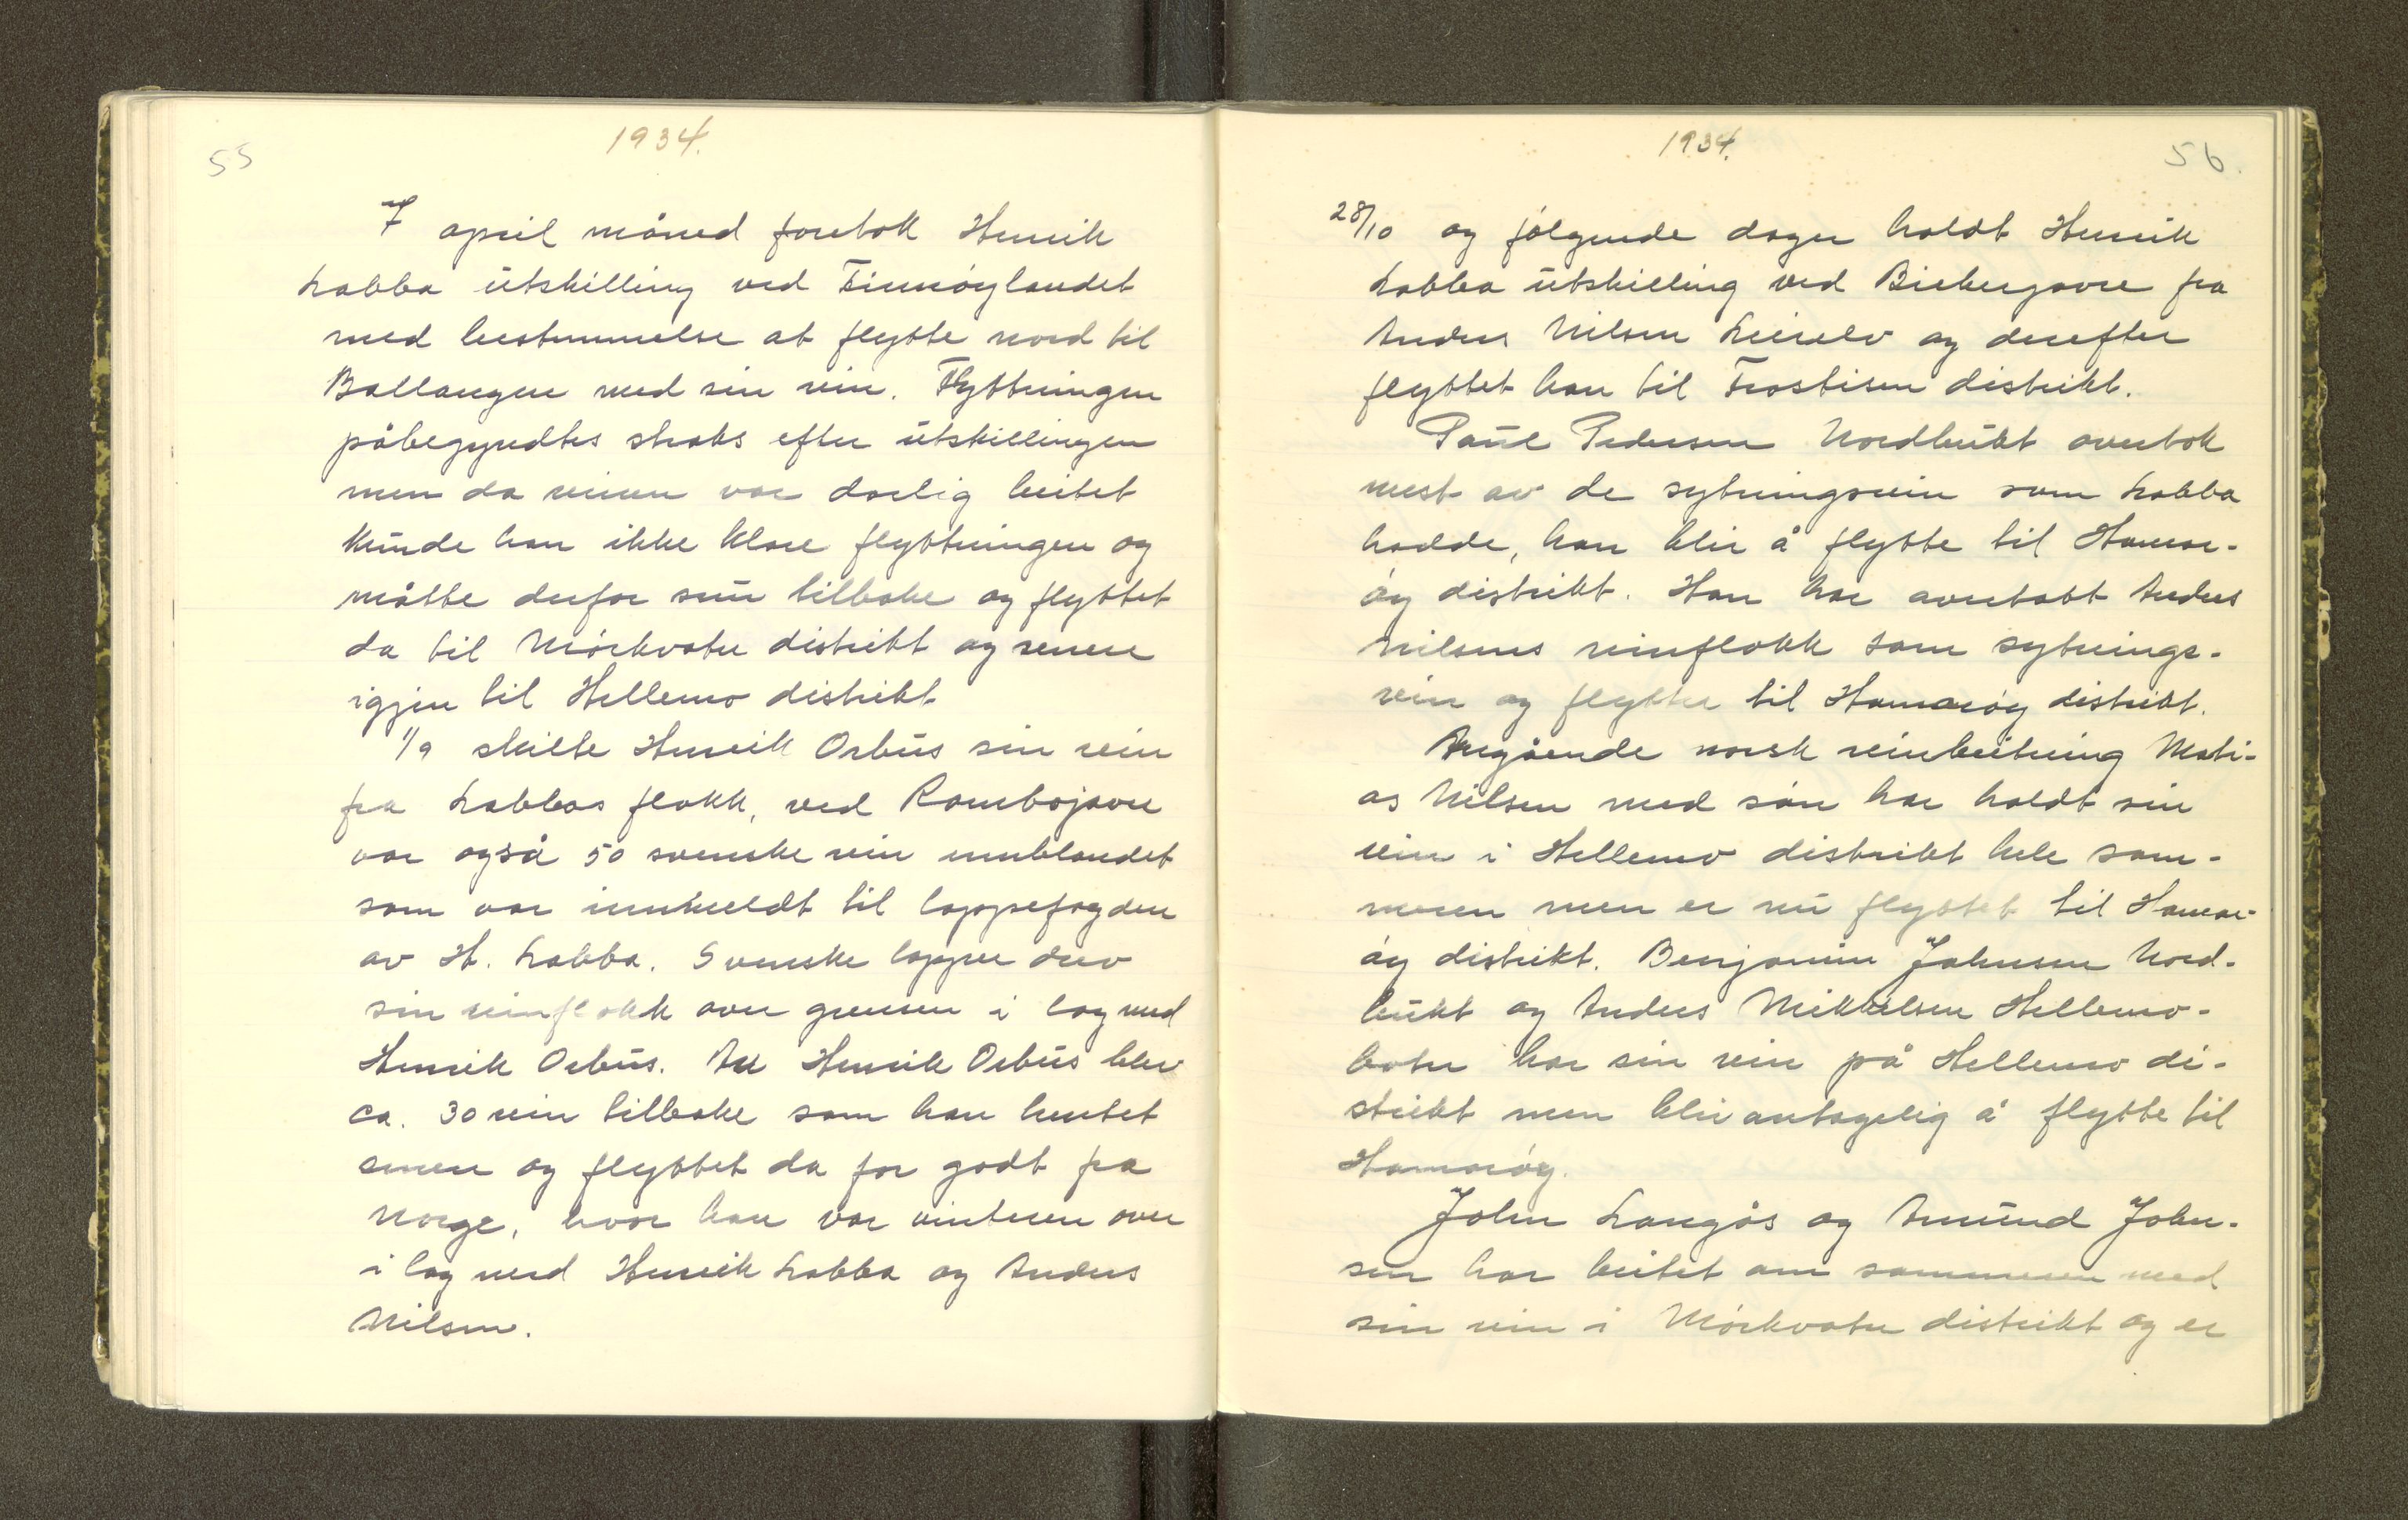 55
1934.
I april måned foretok Henrik
Labba utskilling ved Finnöylandet
med bestemmelse at flytte nord til
Ballangen med sin rein. Flyttningen
påbegyndtes straks efter utskillingen
men da reinen var darlig beitet
kunde han ikke klare flyttningen og
måtte derfor snu tilbake og flyttet
da til Mörkvatn distrikt og senere
igjen til Hellemo distrikt
1/9 skilte Henrik Orbus sin rein
fra Labbas flokk, ved Rombojavre
var også 50 svenske rein innblandet
som var innmeldt til lappefogden
av H. Labba. Svenske lapper drev
sin reinflokk over grensen i lag med
Henrik Orbus. Av Henrik Orbus blev
ca. 30 rein tilbake som han hentet
senere og flyttet da for godt fra
Norge, hvor han var vinteren over
i lag med Henrik Labba og Anders
Nilsen.
1934.
56.
28/10 og fölgende dager holdt Henrik
Labba utskilling ved Bieberjavre fra
Anders Nilsen Leirelv og derefter
flyttet han til Frostisen distrikt.
Paul Pedersen Nordbukt overtok
mest av de sytningsrein som Labba
hadde, han blir å flytte til Hamar-
öy distrikt. Han har overtatt Anders
Nilsens reinflokk som sytnings-
rein og flytter til Hamaröy distrikt.
Angående norsk reinbeitning Mati-
as Nilsen med sön har holdt sin
rein i Hellemo distrikt hele som-
meren men er nu flyttet til Hamar-
öy distrikt. Benjamin Johnsen Nord-
bukt og Anders Mikkelsen Hellemo-
botn har sin rein på Hellemo di-
strikt men blir antagelig å flytte til
Hamaröy.
John Langås og Amund John-
sen har beitet om sommeren med
sin rein i Mörkvatn distrikt og er